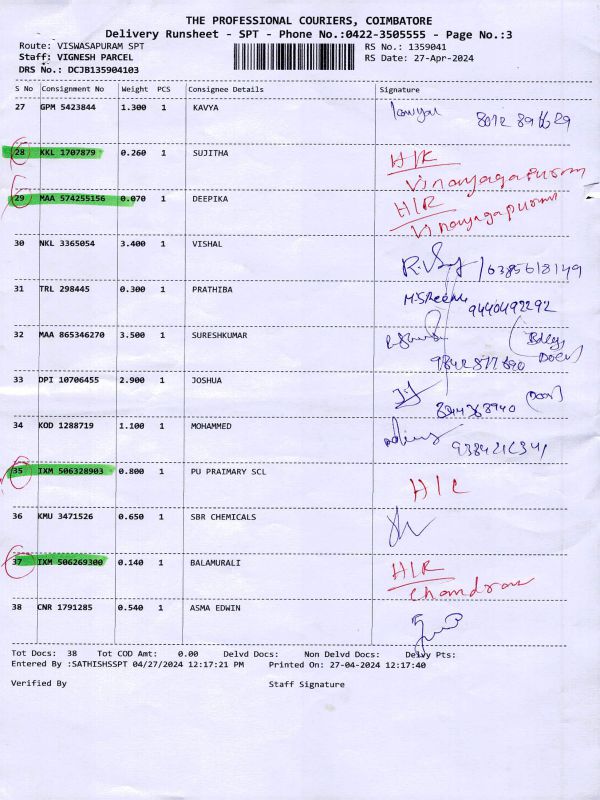 THE PROFESSIONAL COURIERS, COIMBATORE
Delivery Runsheet - SPT - Phone No.:0422-3505555 - Page No.:3
Route: VISWASAPURAM SPT RS No.: 1359041
Staff: VIGNESH PARCEL RS Date: 27-Apr-2024
DRS No.: DCJB135904103
S No Consignment No Weight PCS Consignee Details Signature
27 GPM 5423844 1.300 1 KAVYA
28 KKL 1707879 0.260 1 SUJITHA H/R
Vinayagapuram
29 MAA 574255156 0.070 1 DEEPIKA H/R
Vinayagapuram
30 NKL 3365054 3.400 1 VISHAL
31 TRL 298445 0.300 1 PRATHIBA
9440492292
32 MAA 865346270 3.500 1 SURESHKUMAR
33 DPI 10706455 2.900 1 JOSHUA
34 KOD 1288719 1.100 1 MOHAMMED
35 IXM 506328903 0.800 1 PU PRAIMARY SCL
36 KMU 3471526 0.650 1 SBR CHEMICALS
37 IXM 506269300 0.140 1 BALAMURALI H/R
Chandran
38 CNR 1791285 0.540 1 ASMA EDWIN
Tot Docs: 38 Tot COD Amt: 0.00 Delvd Docs: Non Delvd Docs: Delvy Pts:
Entered By :SATHISHSSPT 04/27/2024 12:17:21 PM Printed On: 27-04-2024 12:17:40
Verified By Staff Signature